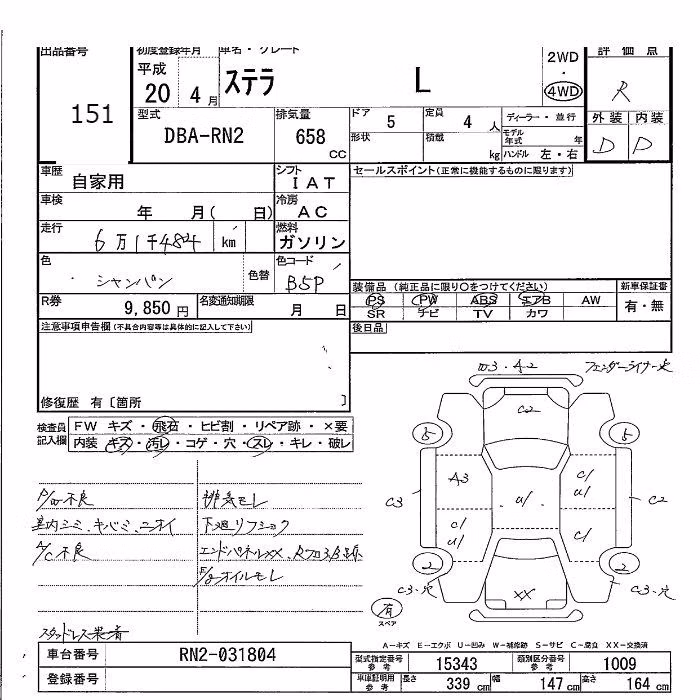 出品番号 初度登録年月 車名・グレード 評価点
151 平成 20 4月 ステラ L 2WD・4WD R
型式 DBA-RN2 排気量 658 CC ドア 5 定員 4人 ディーラー・並行 外装 内装
形状 積載 kg モデル年式 年 ハンドル 左・右 D D
車歴 自家用 シフト IAT セールスポイント(正常に機能するものに限ります)
車検 年 月( 日) 冷房 AC
走行 6万1千484 km 燃料 ガソリン
色 シャンパン 色替 色コード B5P
装備品 (純正品に限り○をつけてください) 新車保証書
R券 9,850円 名変通知期限 月 日 PS PW ABS エアB AW 有・無
SR ナビ TV カワ
注意事項申告欄(不具合内容等は具体的に記入して下さい) 後日品
修復歴 有〔箇所 〕
検査員記入欄 FW キズ・飛石・ヒビ割・リペア跡・×要
内装 キズ・汚レ・コゲ・穴・スレ・キレ・破レ
P/w不良 排気モレ
室内シミ、キバミ、ニオイ 下廻リフショク
A/C不良 エンドパネルXX、
E/gオイルモレ
スタッドレス装着
フェンダーライナー欠
C2
5 5
A3 C1 U1
C3 U1 C2
C1 U1 C1
2 2
C3・穴 XX C3・穴
有 スペア
A－キズ E－エクボ U－凹み W－補修跡 S－サビ C－腐食 XX－交換済
車台番号 RN2-031804 型式指定番号 参考 15343 類別区分番号 参考 1009
登録番号 車庫証明用 参考 長さ 339 cm 幅 147 cm 高さ 164 cm